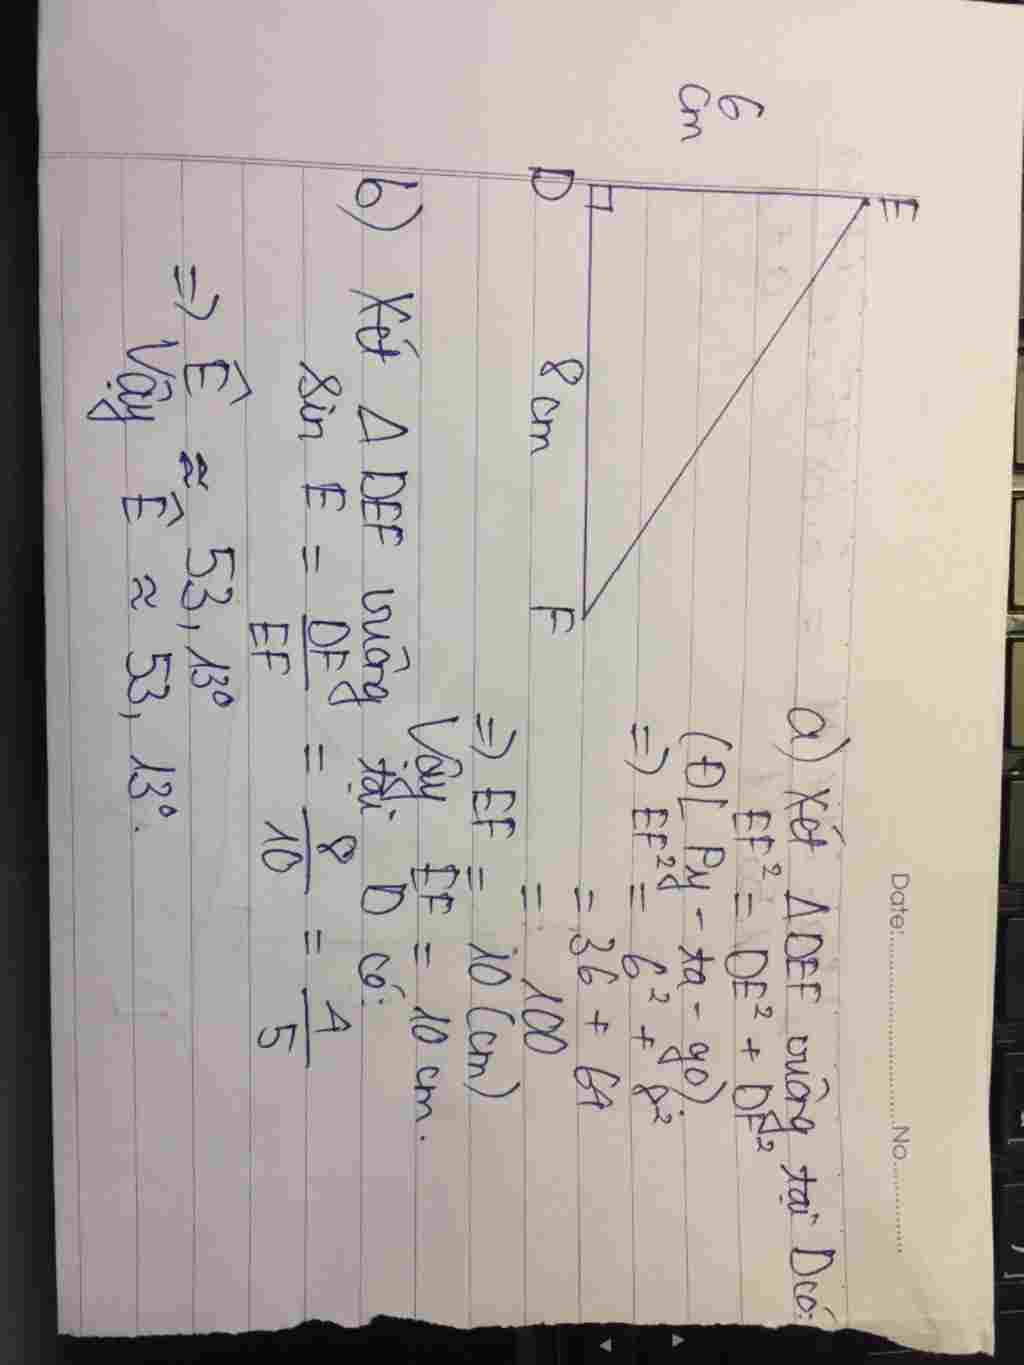 Date: No.
a) Xét Δ DEF vuông tại D có:
EF² = DE² + DF²
(ĐL Py-ta-go)
⇒ EF² = 6² + 8²
= 36 + 64
= 100
⇒ EF = 10 (cm)
Vậy EF = 10 cm.
E
6
cm
D
8 cm
F
b) Xét Δ DEF vuông tại D có:
sin E = DF/EF = 8/10 = 4/5
⇒ Ê ≈ 53,13°
Vậy Ê ≈ 53,13°.